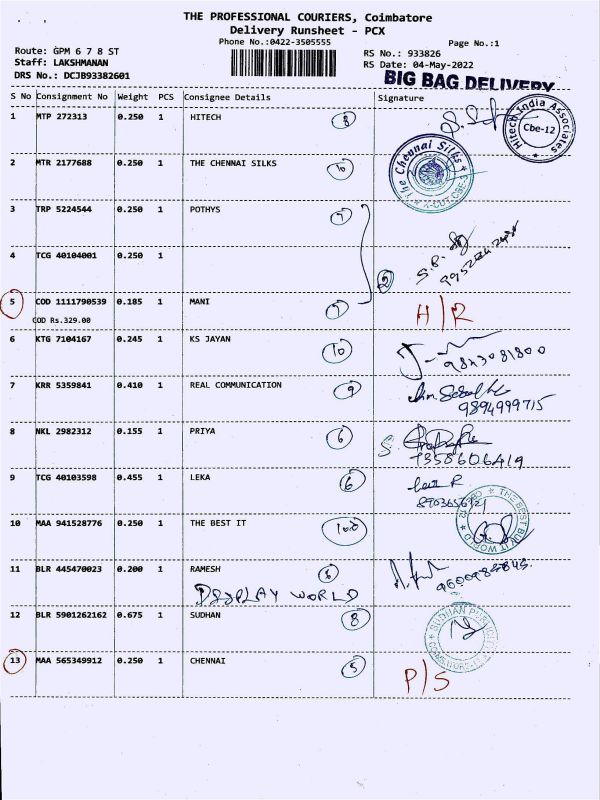 THE PROFESSIONAL COURIERS, Coimbatore
Delivery Runsheet - PCX
Phone No.:0422-3505555
Page No.:1
Route: GPM 6 7 8 ST
RS No.: 933826
Staff: LAKSHMANAN
RS Date: 04-May-2022
DRS No.: DCJB93382601
BIG BAG DELIVERY
S No Consignment No Weight PCS Consignee Details Signature
1 MTP 272313 0.250 1 HITECH 8
Hitech India Associates Cbe-12
2 MTR 2177688 0.250 1 THE CHENNAI SILKS 10
The Chennai Silks
3 TRP 5224544 0.250 1 POTHYS 7
4 TCG 40104001 0.250 1
2
5 COD 1111790539 0.185 1 MANI 7 H/R
COD Rs.329.00
6 KTG 7104167 0.245 1 KS JAYAN 10
9843081800
7 KRR 5359841 0.410 1 REAL COMMUNICATION 9
9894999715
8 NKL 2982312 0.155 1 PRIYA 6
7358606419
9 TCG 40103598 0.455 1 LEKA 6
10 MAA 941528776 0.250 1 THE BEST IT 10.0
THE BEST BUY IT WORLD
11 BLR 445470023 0.200 1 RAMESH 6
DISPLAY WORLD
12 BLR 5901262162 0.675 1 SUDHAN 8
SUDHAN
13 MAA 565349912 0.250 1 CHENNAI 5
P/S